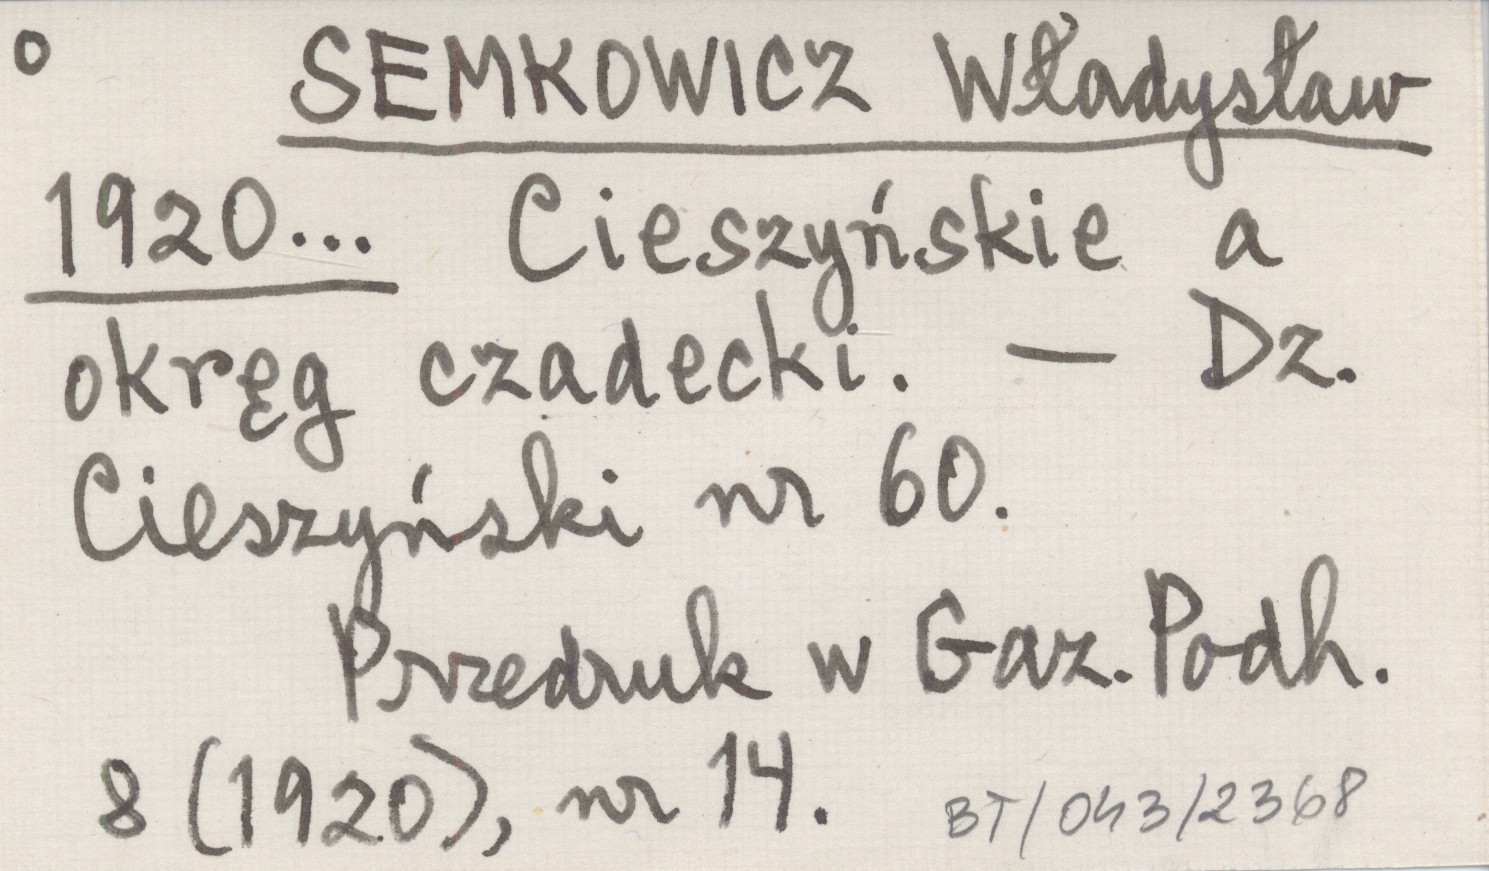 o SEMKOWICZ Władysław
1920... Cieszyńskie a
okręg czadecki. — Dz.
Cieszyński nr 60.
Przedruk w Gaz. Podh.
8 (1920), nr 14. BT/043/2368